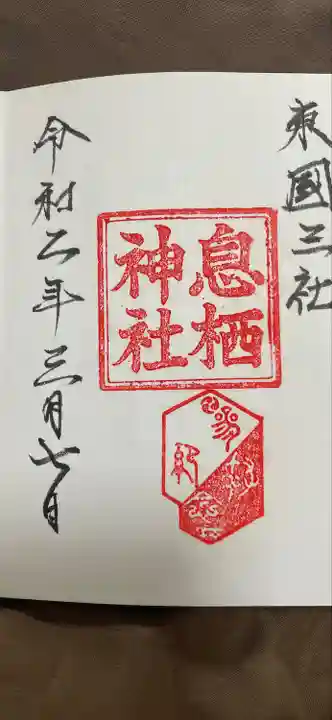 東國三社
息栖
神社
令和二年三月七日